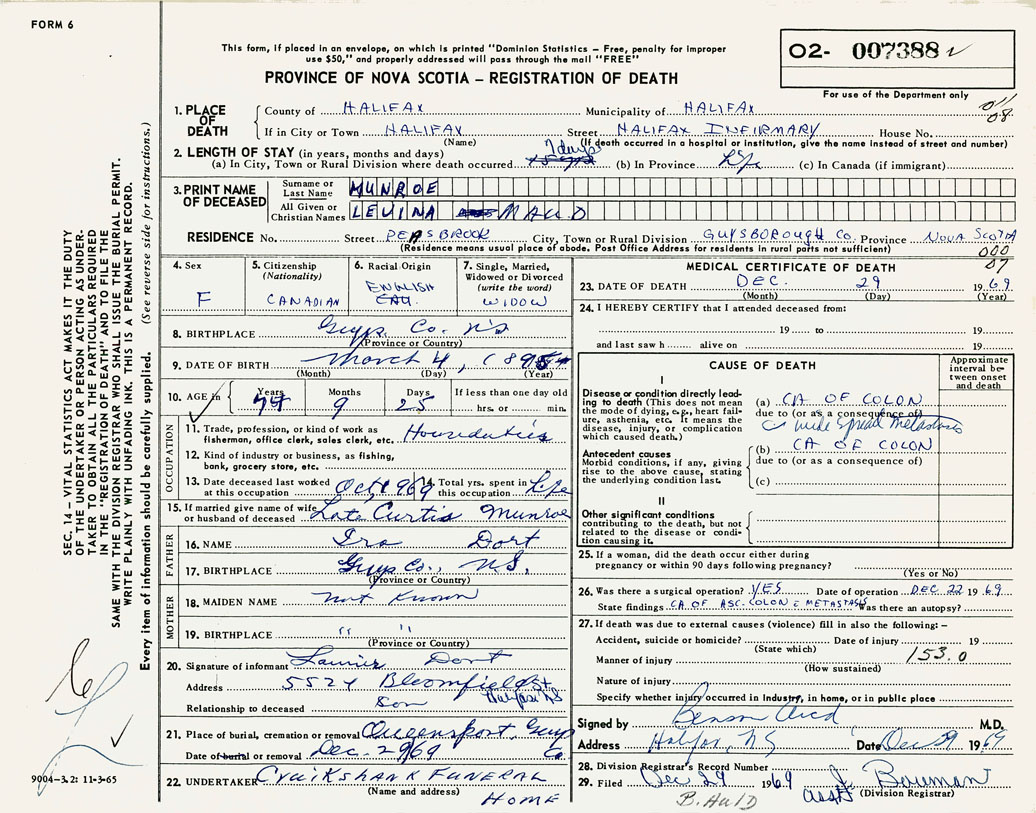 FORM 6
This form, if placed in an envelope, on which is printed "Dominion Statistics – Free, penalty for improper
use $50," and properly addressed will pass through the mail "FREE"
PROVINCE OF NOVA SCOTIA – REGISTRATION OF DEATH
02- 007388
For use of the Department only
011
08
SEC. 14 – VITAL STATISTICS ACT MAKES IT THE DUTY
OF THE UNDERTAKER OR PERSON ACTING AS UNDER-
TAKER TO OBTAIN ALL THE PARTICULARS REQUIRED
IN THE "REGISTRATION OF DEATH" AND TO FILE THE
SAME WITH THE DIVISION REGISTRAR WHO SHALL ISSUE THE BURIAL PERMIT.
WRITE PLAINLY WITH UNFADING INK. THIS IS A PERMANENT RECORD.
Every item of information should be carefully supplied. (See reverse side for instructions.)
1. PLACE OF DEATH
County of HALIFAX Municipality of HALIFAX
If in City or Town HALIFAX Street HALIFAX INFIRMARY House No.
(Name) (If death occurred in a hospital or institution, give the name instead of street and number)
2. LENGTH OF STAY (in years, months and days)
7 days
(a) In City, Town or Rural Division where death occurred (b) In Province Life (c) In Canada (if immigrant)
3. PRINT NAME OF DECEASED
Surname or Last Name MUNROE
All Given or Christian Names LEVINA MAUD
RESIDENCE No. Street PEASBROOK City, Town or Rural Division GUYSBOROUGH Co. Province NOVA SCOTIA
(Residence means usual place of abode. Post Office Address for residents in rural parts not sufficient)
000
07
4. Sex
F
5. Citizenship
(Nationality)
CANADIAN
6. Racial Origin
ENGLISH
7. Single, Married,
Widowed or Divorced
(write the word)
WIDOW
8. BIRTHPLACE Guys. Co. N.S
(Province or Country)
9. DATE OF BIRTH March 4, 189
(Month) (Day) (Year)
10. AGE in
Years
Months
9
Days
25
If less than one day old
hrs. or min.
OCCUPATION
11. Trade, profession, or kind of work as
fisherman, office clerk, sales clerk, etc. Houseduties
12. Kind of industry or business, as fishing,
bank, grocery store, etc.
13. Date deceased last worked
at this occupation Oct, 1969
14. Total yrs. spent in
this occupation Life
15. If married give name of wife
or husband of deceased Late Curtis Munroe
FATHER
16. NAME Ira Dort
17. BIRTHPLACE Guys Co., N.S.
(Province or Country)
MOTHER
18. MAIDEN NAME Not Known
19. BIRTHPLACE " "
(Province or Country)
20. Signature of informant Laurier Dort
Address 5524 Bloomfield St
Halifax NS
Relationship to deceased Son
21. Place of burial, cremation or removal Queensport, Guys
Co.
Date of burial or removal Dec. 29/69
22. UNDERTAKER Cruikshank FUNERAL
(Name and address)
HOME
9004–3.2: 11-3-65
MEDICAL CERTIFICATE OF DEATH
23. DATE OF DEATH DEC. 29 1969
(Month) (Day) (Year)
24. I HEREBY CERTIFY that I attended deceased from:
19 to 19
and last saw h alive on 19
CAUSE OF DEATH
Approximate
interval be-
tween onset
and death
I
Disease or condition directly lead-
ing to death (This does not mean
the mode of dying, e.g., heart fail-
ure, asthenia, etc. It means the
disease, injury, or complication
which caused death.)
(a) CA OF COLON
due to (or as a consequence of)
c wide spread metastasis
Antecedent causes
Morbid conditions, if any, giving
rise to the above cause, stating
the underlying condition last.
(b) CA OF COLON
due to (or as a consequence of)
(c)
II
Other significant conditions
contributing to the death, but not
related to the disease or condi-
tion causing it.
25. If a woman, did the death occur either during
pregnancy or within 90 days following pregnancy?
(Yes or No)
26. Was there a surgical operation? YES Date of operation DEC 22 1969
State findings CA OF ASC. COLON C METASTASIS Was there an autopsy?
27. If death was due to external causes (violence) fill in also the following: –
Accident, suicide or homicide? Date of injury 19
(State which)
153.0
Manner of injury
(How sustained)
Nature of injury
Specify whether injury occurred in industry, in home, or in public place
Signed by Benson Auld M.D.
Address Halifax, NS Date Dec 29 1969
28. Division Registrar's Record Number
29. Filed Dec 29 1969 Bowman
(Division Registrar)
B. Auld
Asst